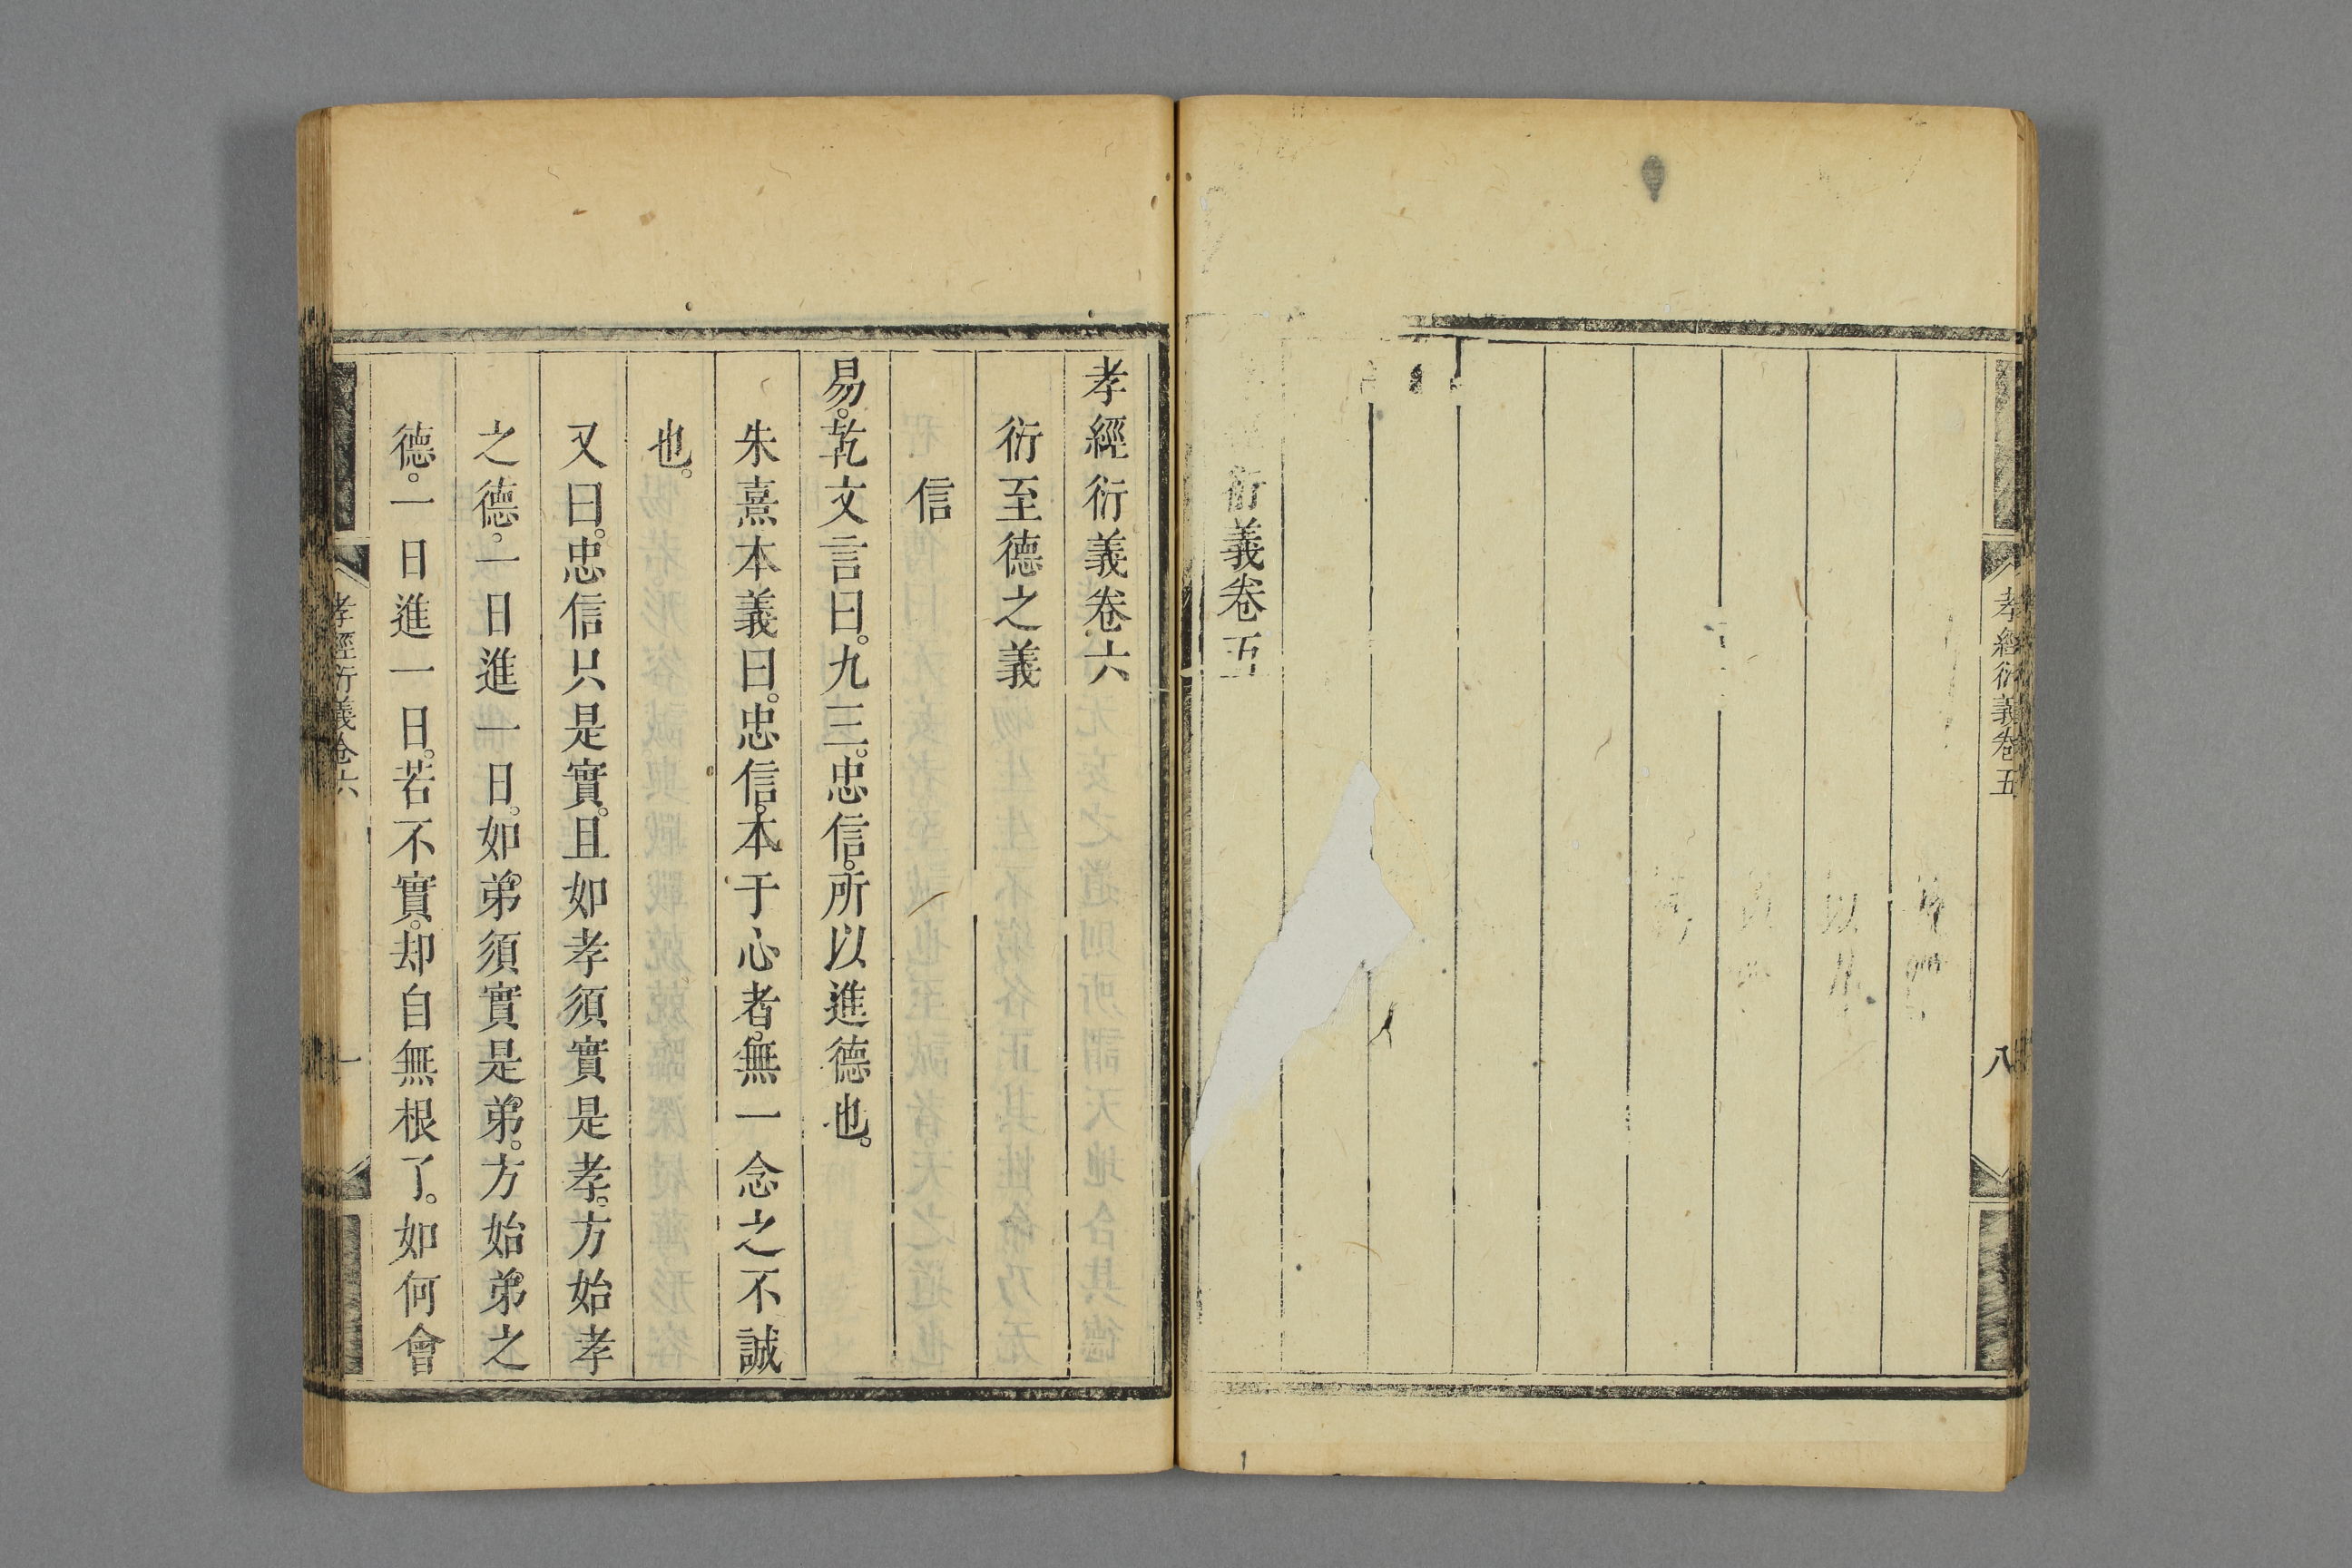 孝經衍義卷五
八
衍義卷五
孝經衍義卷六
衍至德之義
信
易。乾文言曰。九三。忠信。所以進德也。
朱熹本義曰。忠信。本于心者。無一念之不誠
也。
又曰。忠信只是實。且如孝須實是孝。方始孝
之德。一日進一日。如弟須實是弟。方始弟之
德。一日進一日。若不實。却自無根了。如何會
孝經衍義卷六
一